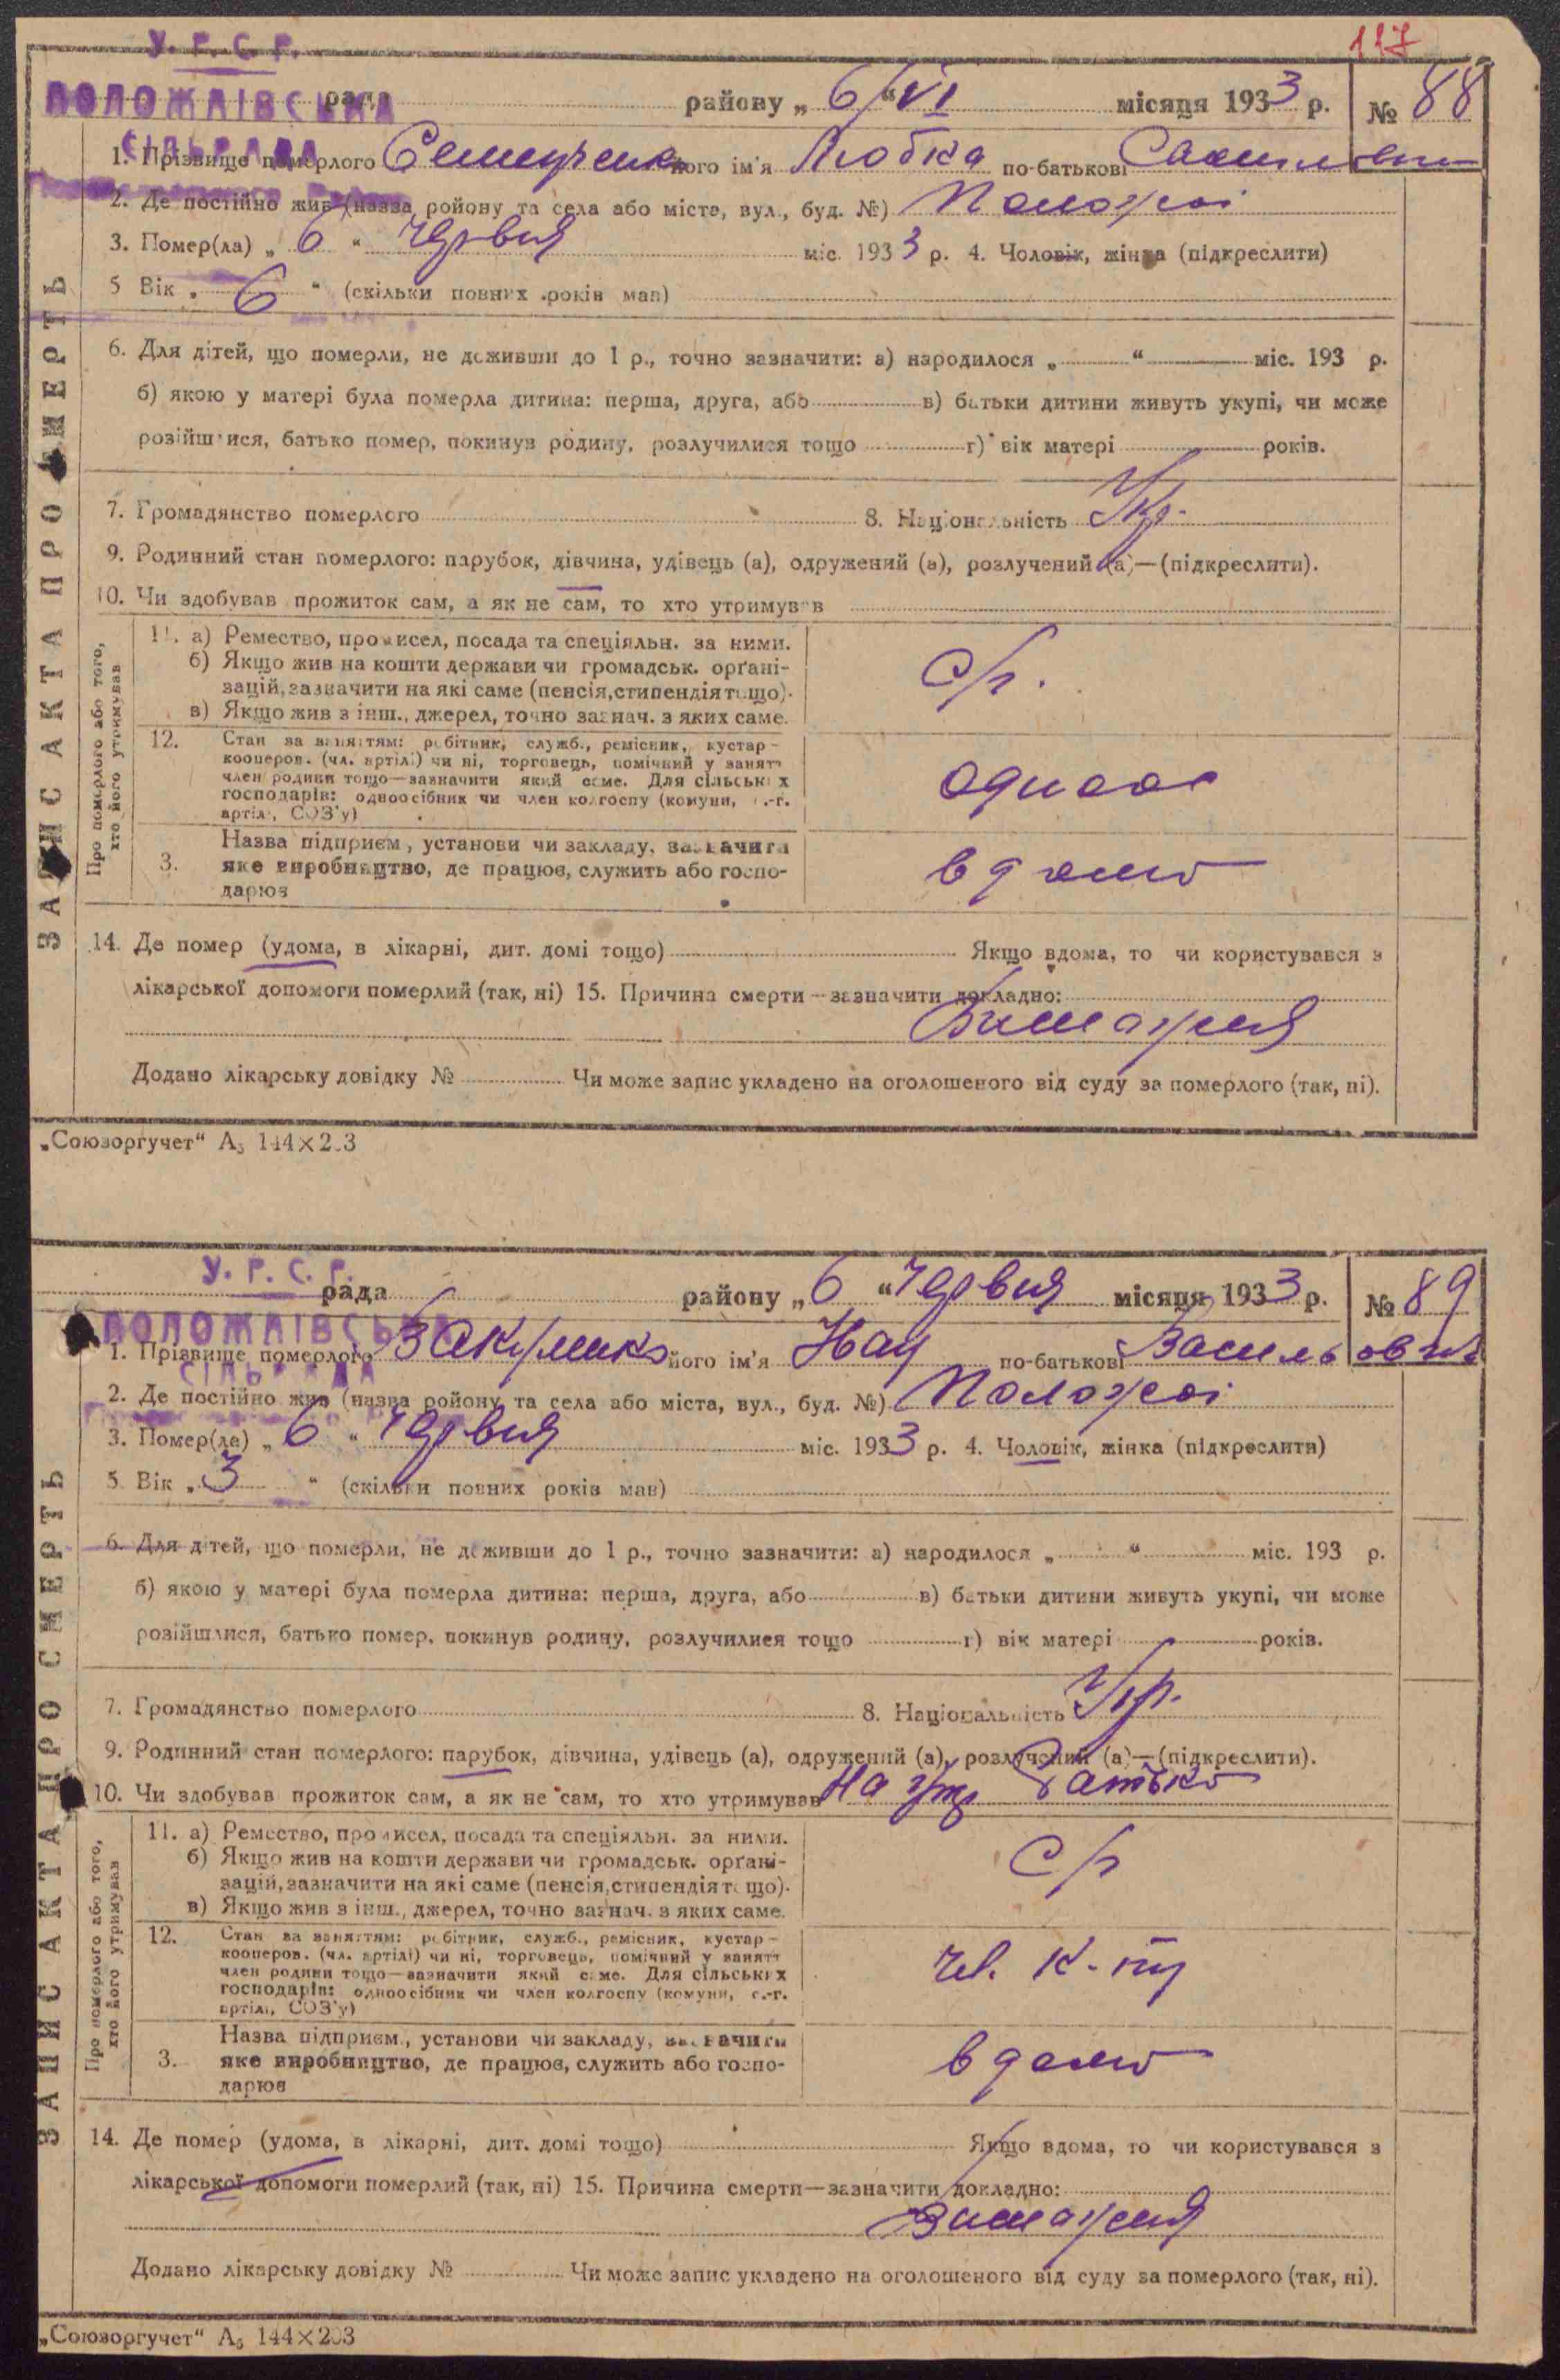 117
У. Р. С. Р.
ПОЛОЖАЇВСЬКА рада району „ 6 “ VI місяця 1933 р. № 88
СІЛЬРАДА
1. Прізвище померлого його ім'я Любка по-батькові
2. Де постійно жив (назва ройону та села або міста, вул., буд. №) Положаї
3. Помер(ла) „ 6 “ червня міс. 1933 р. 4. Чоловік, жінка (підкреслити)
5 Вік „ 6 “ (скільки повних років мав)
6. Для дітей, що померли, не доживши до 1 р., точно зазначити: а) народилося „ “ міс. 193 р.
б) якою у матері була померла дитина: перша, друга, або в) батьки дитини живуть укупі, чи може
розійшлися, батько помер, покинув родину, розлучилися тощо г) вік матері років.
7. Громадянство померлого 8. Національність Укр.
9. Родинний стан померлого: парубок, дівчина, удівець (а), одружений (а), розлучений (а)—(підкреслити).
10. Чи здобував прожиток сам, а як не сам, то хто утримував
ЗАПИС АКТА ПРО СМЕРТЬ
Про померлого або того, хто його утримував
11. а) Ремество, промисел, посада та спеціяльн. за ними.
б) Якщо жив на кошти держави чи громадськ. орґані-
зацій, зазначити на які саме (пенсія, стипендія тощо).
в) Якщо жив з інш., джерел, точно зазнач. з яких саме.
с/г.
12. Стан за заняттям: робітник, служб., ремісник, кустар-
кооперов. (чл. артілі) чи ні, торговець, помічний у занятт
член родини тощо—зазначити який саме. Для сільських
господарів: одноосібник чи член колгоспу (комуни, с.-г.
артілі, СОЗ'у)
одноос
3. Назва підприєм., установи чи закладу, зазначити
яке виробництво, де працює, служить або госпо-
дарює
вдома
14. Де помер (удома, в лікарні, дит. домі тощо) Якщо вдома, то чи користувався з
лікарської допомоги померлий (так, ні) 15. Причина смерти—зазначити докладно:
Виснаження
Додано лікарську довідку № Чи може запис укладено на оголошеного від суду за померлого (так, ні).
„Союзоргучет“ А₅ 144×203
У. Р. С. Р.
рада району „ 6 “ червня місяця 1933 р. № 89
ПОЛОЖАЇВСЬКА
СІЛЬРАДА
1. Прізвище померлого його ім'я по-батькові Васильович
2. Де постійно жив (назва ройону та села або міста, вул., буд. №) Положаї
3. Помер(ла) „ 6 “ червня міс. 1933 р. 4. Чоловік, жінка (підкреслити)
5 Вік „ 3 “ (скільки повних років мав)
6. Для дітей, що померли, не доживши до 1 р., точно зазначити: а) народилося „ “ міс. 193 р.
б) якою у матері була померла дитина: перша, друга, або в) батьки дитини живуть укупі, чи може
розійшлися, батько помер, покинув родину, розлучилися тощо г) вік матері років.
7. Громадянство померлого 8. Національність Укр.
9. Родинний стан померлого: парубок, дівчина, удівець (а), одружений (а), розлучений (а)—(підкреслити).
10. Чи здобував прожиток сам, а як не сам, то хто утримував На утр батько
ЗАПИС АКТА ПРО СМЕРТЬ
Про померлого або того, хто його утримував
11. а) Ремество, промисел, посада та спеціяльн. за ними.
б) Якщо жив на кошти держави чи громадськ. орґані-
зацій, зазначити на які саме (пенсія, стипендія тощо).
в) Якщо жив з інш., джерел, точно зазнач. з яких саме.
с/г
12. Стан за заняттям: робітник, служб., ремісник, кустар-
кооперов. (чл. артілі) чи ні, торговець, помічний у занятт
член родини тощо—зазначити який саме. Для сільських
господарів: одноосібник чи член колгоспу (комуни, с.-г.
артілі, СОЗ'у)
чл. к-пу
3. Назва підприєм., установи чи закладу, зазначити
яке виробництво, де працює, служить або госпо-
дарює
вдома
14. Де помер (удома, в лікарні, дит. домі тощо) Якщо вдома, то чи користувався з
лікарської допомоги померлий (так, ні) 15. Причина смерти—зазначити докладно:
Виснаження
Додано лікарську довідку № Чи може запис укладено на оголошеного від суду за померлого (так, ні).
„Союзоргучет“ А₅ 144×203